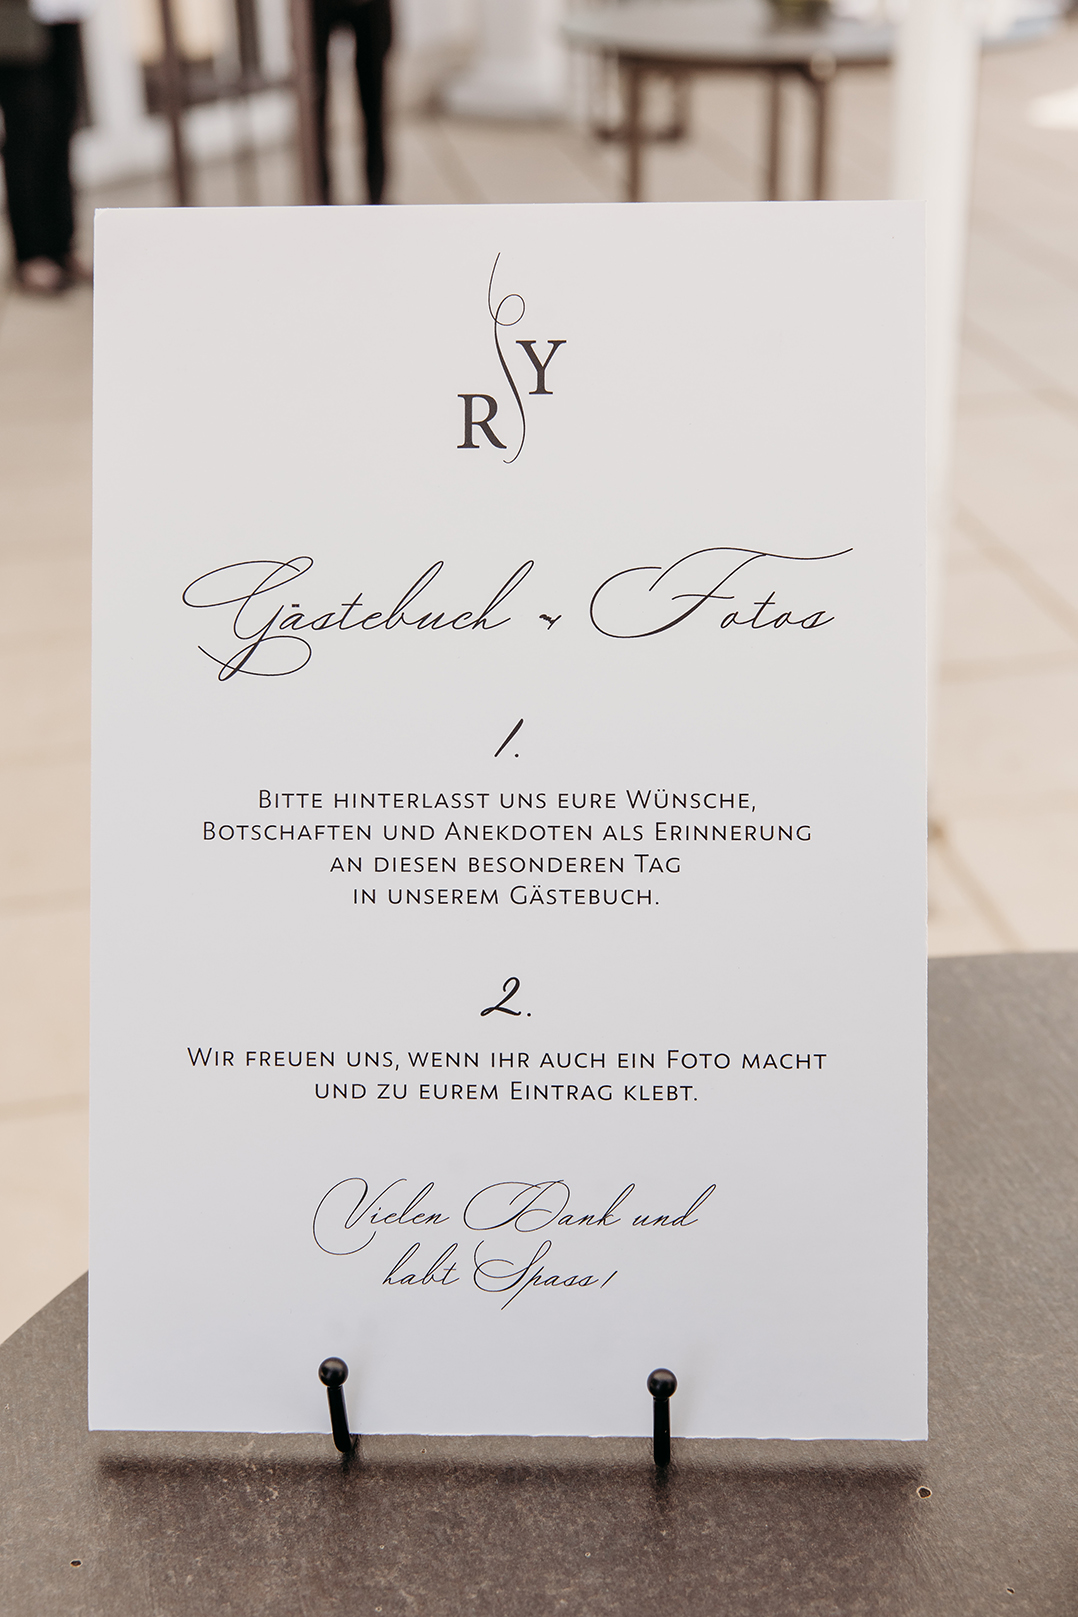 R Y
Gästebuch & Fotos
1.
Bitte hinterlasst uns eure Wünsche,
Botschaften und Anekdoten als Erinnerung
an diesen besonderen Tag
in unserem Gästebuch.
2.
Wir freuen uns, wenn ihr auch ein Foto macht
und zu eurem Eintrag klebt.
Vielen Dank und
habt Spass!